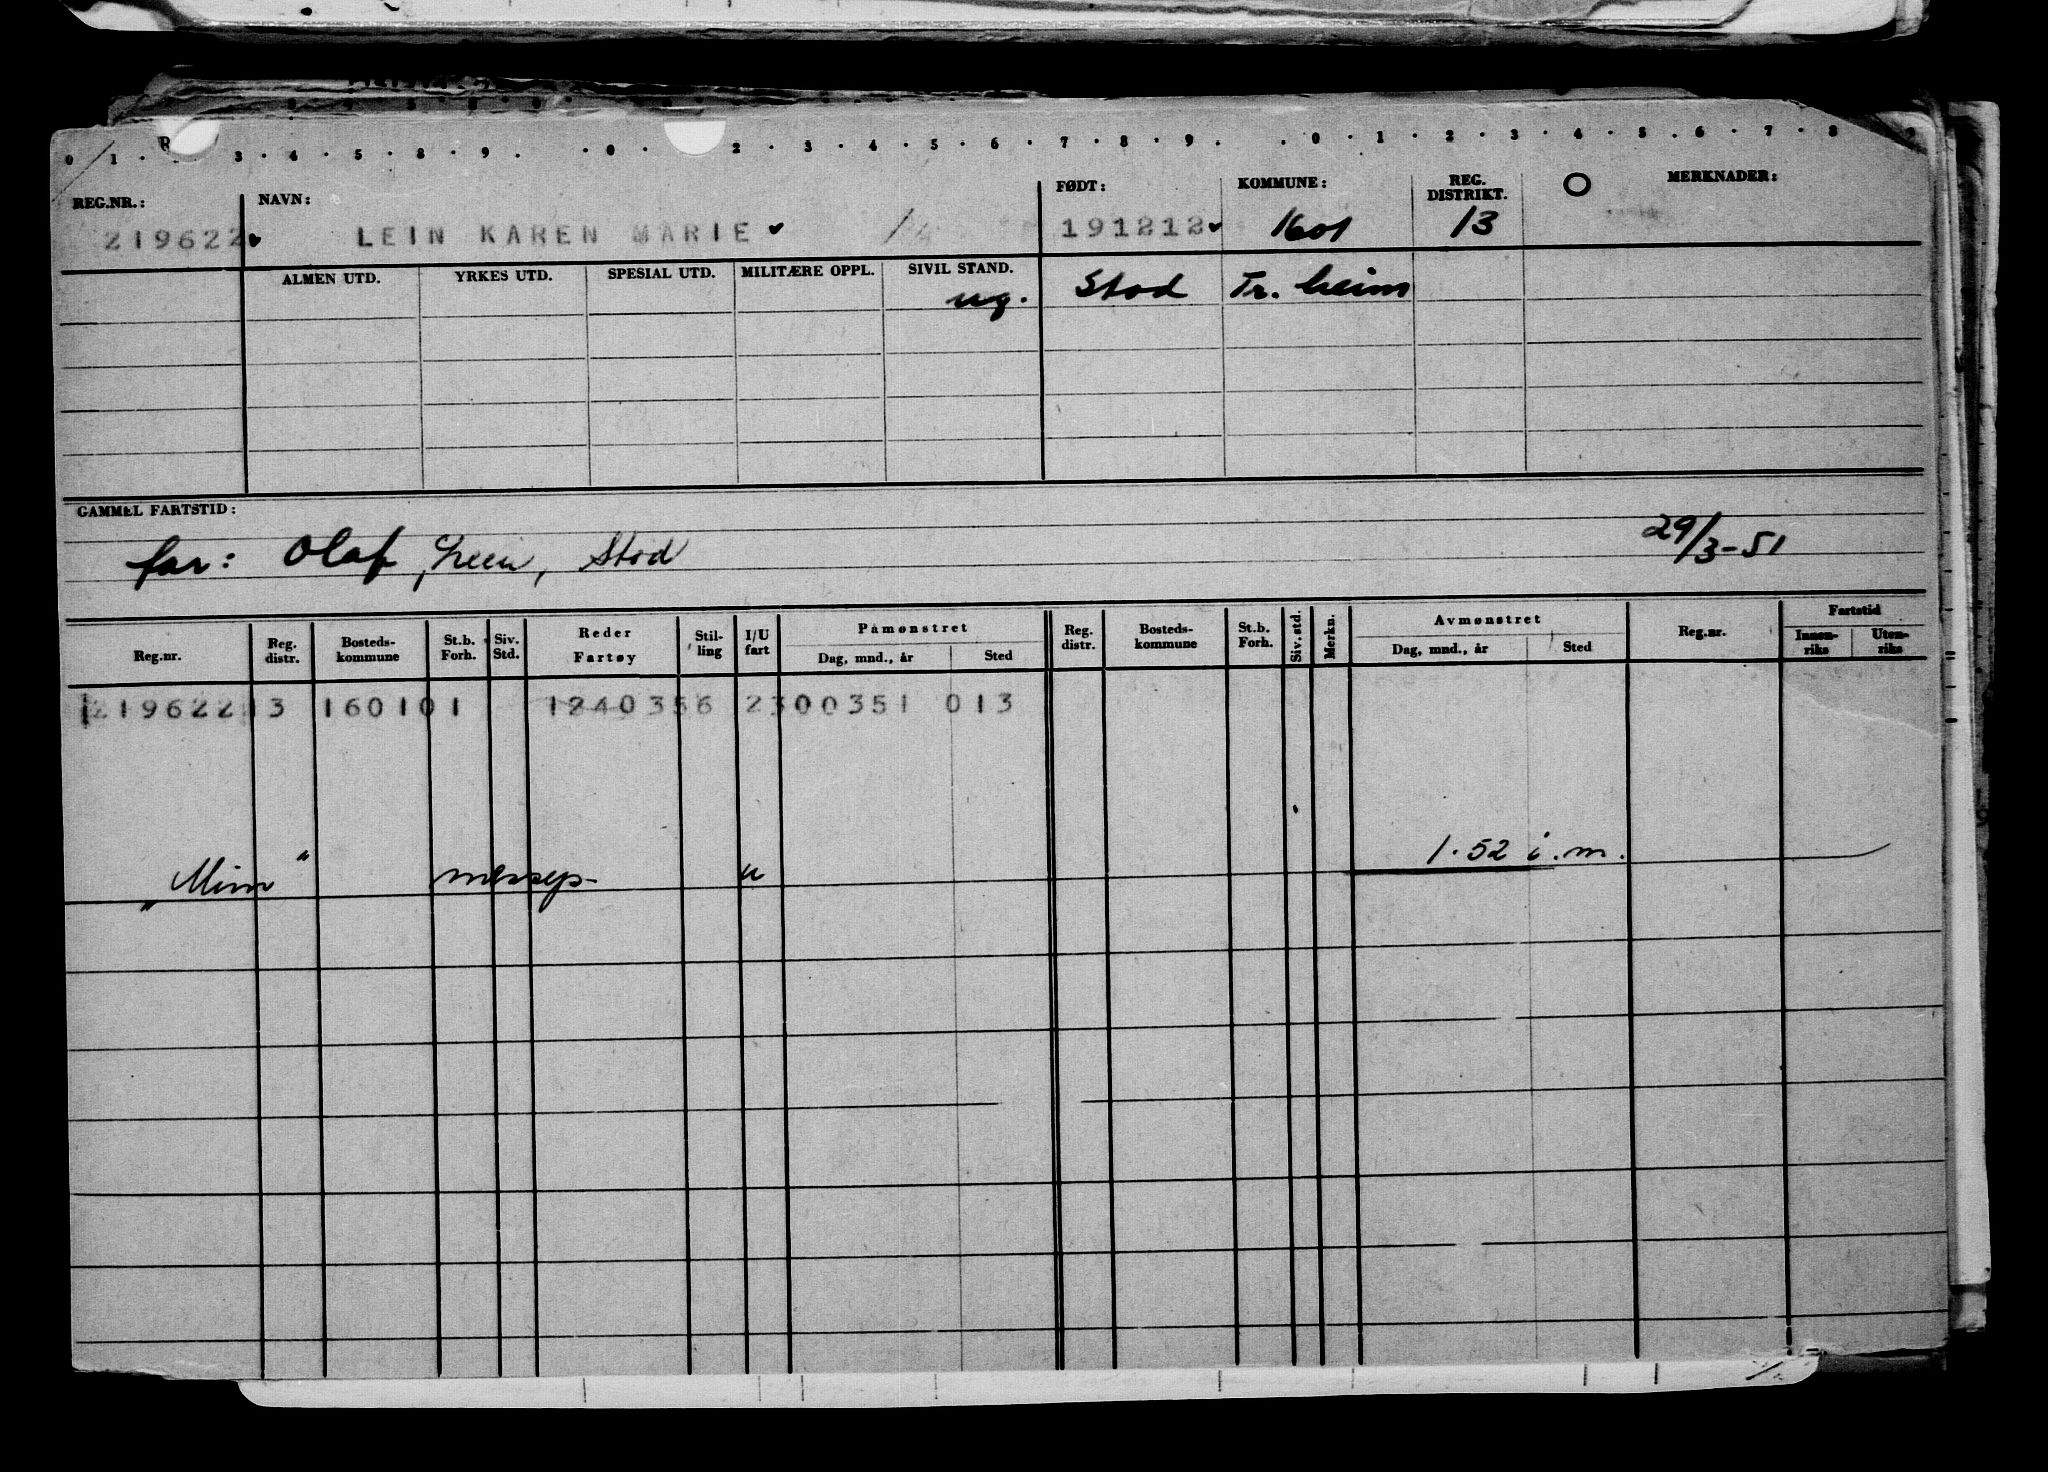 0 1 . R 3 . 4 . 5 . 8 . 9 . . 0 . 2 . 3 . 4 . 5 . 6 . 7 . 8 . 9 . . 0 . 1 . 2 . 3 . 4 . 5 . 6 . 7 . 8 9
REG.NR.: NAVN: FØDT: KOMMUNE: REG. DISTRIKT. O MERKNADER:
219622 LEIN KAREN MARIE 191212 1601 13
ALMEN UTD. YRKES UTD. SPESIAL UTD. MILITÆRE OPPL. SIVIL STAND.
ug. Stod Tr. heim
GAMMEL FARTSTID:
far: Olaf Lein, Stod 29/3-51
Reg.nr. Reg. distr. Bosteds-kommune St.b. Forh. Siv. Std. Reder Fartøy Stil-ling I/U fart Påmønstret Dag, mnd., år Sted Reg. distr. Bosteds-kommune St.b. Forh. Siv. std. Merkn. Avmønstret Dag, mnd., år Sted Reg.nr. Fartstid Innen-riks Uten-riks
219622 13 160101 1240356 2300351 013
"Mim" messep- u 1.52 i.m.